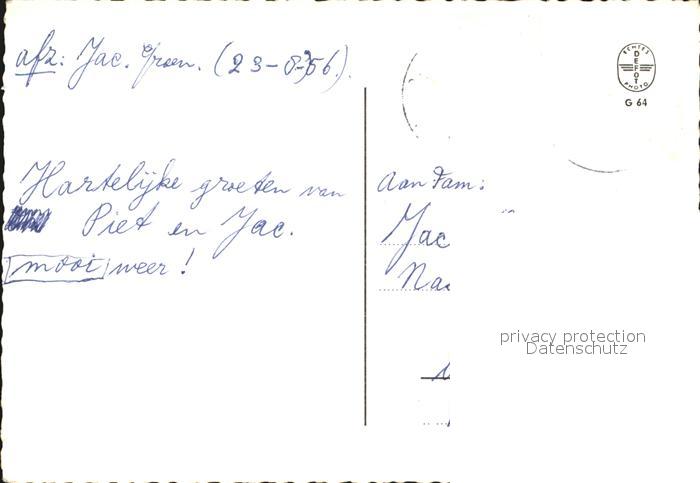 afz: Jac. Groen. (23-8-'56).
Hartelijke groeten van
Piet en Jac.
mooi weer!
ECHTES
DEFOT
PHOTO
G 64
Aan Fam:
Jac
Na
privacy protection
Datenschutz